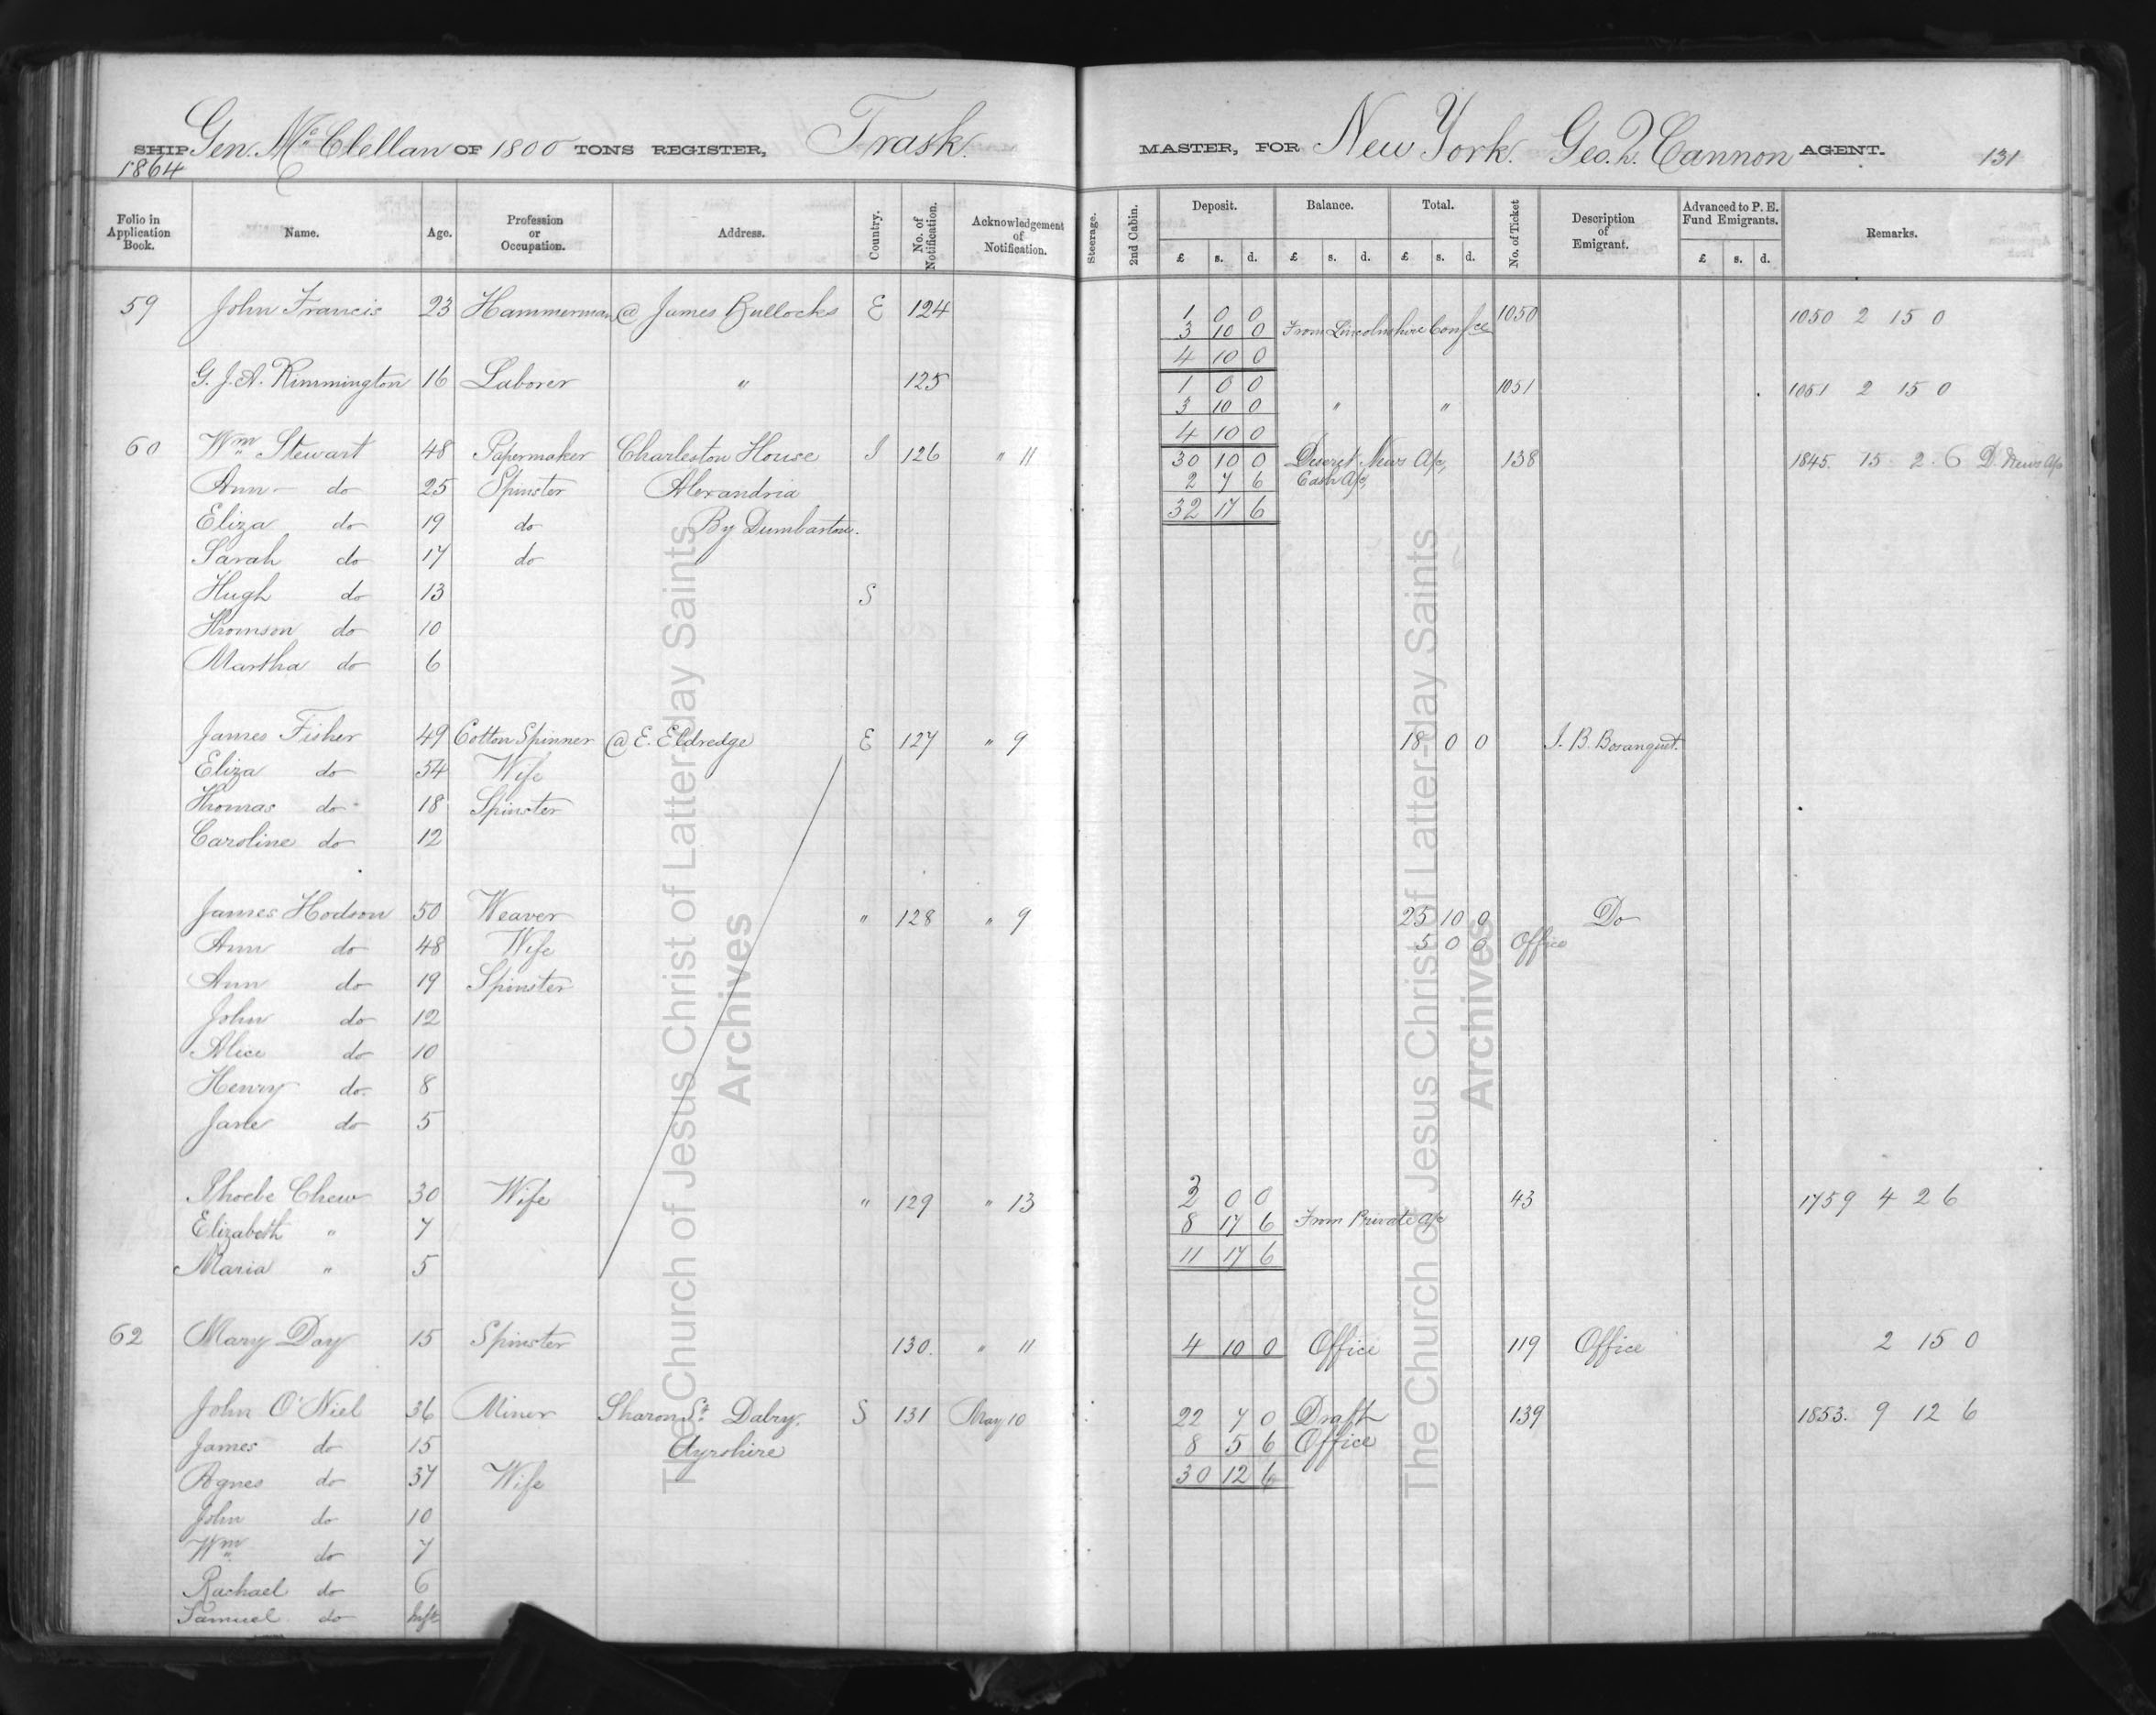 SHIP Gen. Mc. Clellan OF 1800 TONS REGISTER, Trask. MASTER, FOR New York. Geo. Q. Cannon AGENT. 131
1864
Folio in Application Book. Name. Age. Profession or Occupation. Address. Country. No. of Notification. Acknowledgement of Notification. Steerage. 2nd Cabin. Deposit. £ s. d. Balance. £ s. d. Total. £ s. d. No. of Ticket Description of Emigrant. Advanced to P. E. Fund Emigrants. £ s. d. Remarks.
59 John Francis 23 Hammerman @ James Bullocks E 124 1 0 0 1050 1050 2 15 0
3 10 0 From Lincolnshire Confce
4 10 0
G. J. A. Rimmington 16 Laborer " 125 1 0 0 1051 1051 2 15 0
3 10 0 " "
4 10 0
60 Wm Stewart 48 Papermaker Charleston House I 126 " 11 30 10 0 Deseret News A/c, 138 1845. 15. 2. 6 D. News A/c
Ann do 25 Spinster Alexandria 2 7 6 Cash A/c,
Eliza do 19 do By Dumbarton. 32 17 6
Sarah do 17 do
Hugh do 13 S
Thomson do 10
Martha do 6
James Fisher 49 Cotton Spinner @ E. Eldredge E 127 " 9 18 0 0 J. B. Bosanquet.
Eliza do 54 Wife
Thomas do 18 Spinster
Caroline do 12
James Hodson 50 Weaver " 128 " 9 25 10 0 Do
Ann do 48 Wife 5 0 0 Office
Ann do 19 Spinster
John do 12
Alice do 10
Henry do. 8
Jane do 5
Phoebe Chew 30 Wife " 129 " 13 3 0 0 43 1759 4 2 6
Elizabeth " 7 8 17 6 From Private A/c
Maria " 5 11 17 6
62 Mary Day 15 Spinster 130. " 11 4 10 0 Office 119 Office 2 15 0
John O'Niel 36 Miner Sharon St. Dalry. S 131 May 10 22 7 0 Draft 139 1853. 9 12 6
James do 15 Ayrshire 8 5 6 Office
Agnes do 37 Wife 30 12 6
John do 10
Wm do 7
Rachael do 6
Samuel do Inft
The Church of Jesus Christ of Latter-day Saints
Archives
The Church of Jesus Christ of Latter-day Saints
Archives